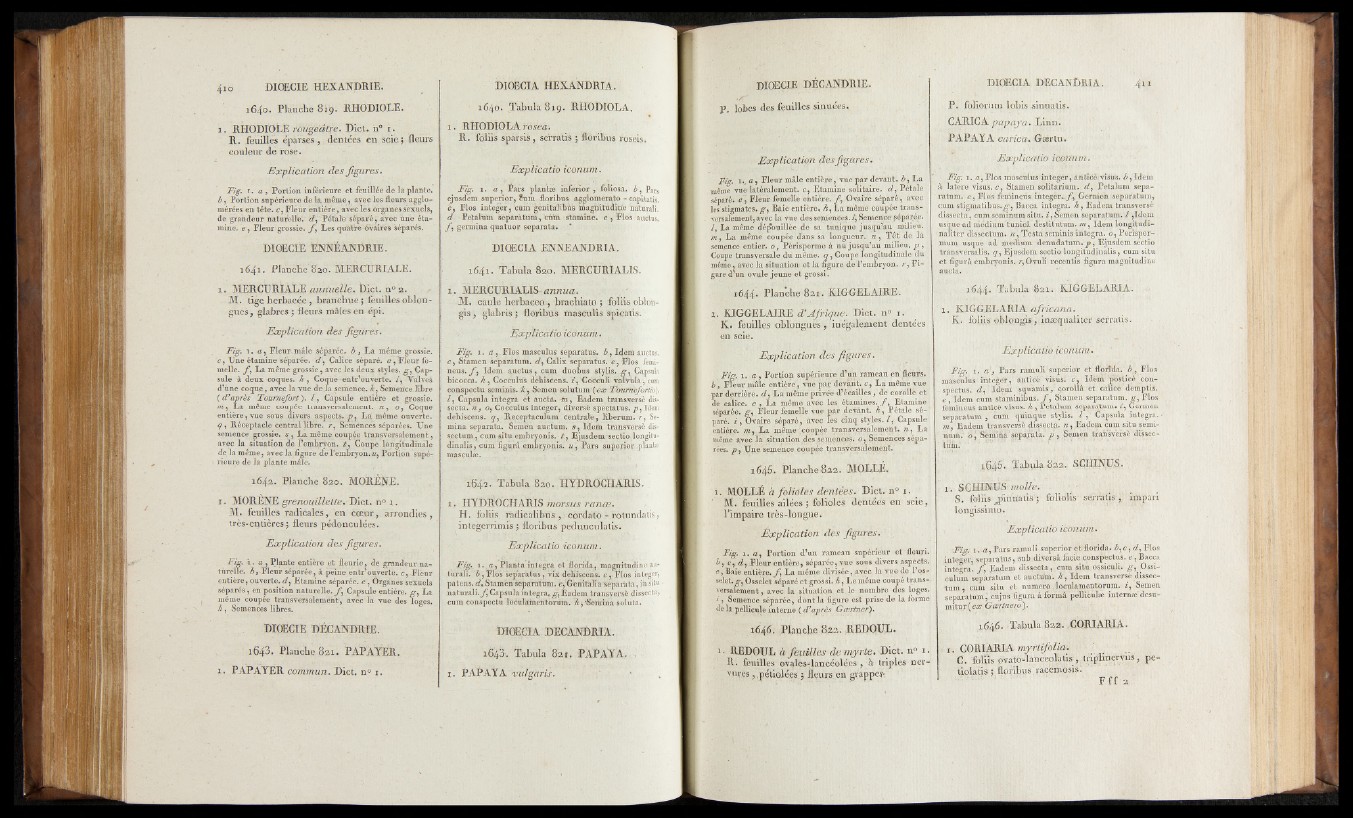 410 DIŒCIE HEXANDRIE.
1640. Planche 819. RHODIOLE.
1. RHODIOLE rougeâtre. Dict. n° 1.
R. feuilles éparses, dentées en scie; fleurs
couleur de rose.
Explication des figures.
Fig. 1. a, Portion inférieure et feuillée de la plante.
b, Portion supérieure de la même, avec les fleurs agglo-
mérées en tête. c, Fleur entière, avec les organes sexuels,
de grandeur naturelle. d, Pétale séparé, avec une éta-
mine. e, Fleur grossie. f, Les quatre ovaires séparés.
DIŒCIE ENNÉANDRIE.
1641. Planche 820. MERCURIALE.
1. MERCURIALE annuelle. Dict. n° 2.
M. tige herbacée, branchue; feuilles oblon-
gues, glabres; fleurs mâles en épi.
Explication des figures.
Fig. 1. a, Fleur mâle séparée. b, La même grossie.
c, Une étamine séparée. d, Calice séparé. e, Fleur fe-
melle. f, La même grossie, avec les deux styles. g, Cap-
sule à deux coques. h, Coque entr'ouverte. i, Valves
d'une coque, avec la vue de la semence. k, Semence libre
(d'après Tournefort). l, Capsule entière et grossie.
m, La même coupée transversalement. n, o, Coque
entière, vue sous divers aspects. p, La même ouverte.
q, Réceptacle central libre. r, Semences séparées. Une
semence grossie. s, La même coupée transversalement,
avec la situation de l'embryon. t, Coupe longitudinale
de la même, avec la figure de l'embryon. u, Portion supé-
rieure de la plante mâle.
1642. Planche 820. MORÈNE.
1. MORÈNE grenouillette. Dict. n° 1.
M. feuilles radicales, en cœur, arrondies,
très-entières; fleurs pédonculées.
Explication des figures.
Fig. 1. a, Plante entière et fleurie, de grandeur na-
turelle. b, Fleur séparée, à peine entr'ouverte. c, Fleur
entière, ouverte. d, Etamine séparée. e, Organes sexuels
séparés, en position naturelle. f, Capsule entière. g, La
même coupée transversalement, avec la vue des loges.
h, Semences libres.
DIŒCIE DÉCANDRIE.
1643. Planche 821. PAPAYER.
1. PAPAYER commun. Dict. n° 1.
DIŒCIA HEXANDRIA.
1640. Tabula 819. RHODIOLA.
1. RHODIOLA rosea.
R. foliis sparsis, serratis; floribus roseis.
Explicatio iconum.
Fig. 1. a, Pars plantæ inferior, foliosa. b, Pars
ejusdem superior, cum floribus agglomerato-capitatis.
c, Flos integer, cum genitalibus magnitudine naturali.
d Petalum separatum, cum stamine. e, Flos auctus.
f, germina quatuor separata.
DIŒCIA ENNEANDRIA.
1641. Tabula 820. MERCURIALIS.
1. MERCURIALIS annua.
M. caule herbaceo, brachiato; foliis oblon-
gis, glabris; floribus masculis spicatis.
Explicatio iconum.
Fig. 1. a, Flos masculus separatus. b, Idem auctus.
c, Stamen separatum. d, Calix separatus. e, Flos femi-
neus. f, Idem auctus, cum duobus stylis. g, Capsula
bicocca. h, Cocculus dehiscens. i, Cocculi valvula, cum
conspectu seminis. k, Semen solutum (ex Tournefortio).
l, Capsula integra et aucta. m, Eadem transversè dis-
secta. n, o, Cocculus integer, diversè spectatus. p, Idem
dehiscens. q, Receptaculum centrale, liberum. r, Se-
mina separata. Semen auctum. s, Idem transversè dis-
sectum, cum situ embryonis. t, Ejusdem sectio longitu-
dinalis, cum figurâ embryonis. u, Pars superior plantæ
masculæ.
1642. Tabula 820. HYDROCHARIS.
1. HYDROCHARIS morsus ranæ.
H. foliis radicalibus, cordato-rotundatis,
integerrimis; floribus pedunculatis.
Explicatio iconum.
Fig. 1. a, Planta integra et florida, magnitudine na-
turali. b, Flos separatus, vix dehiscens. c, Flos integer,
patens. d, Stamen separatum. e, Genitalia separata, in situ
naturali. f, Capsula integra. g, Eadem transversè dissecta,
cum conspectu loculamentorum. h, Semina soluta.
DIŒCIA DECANDRIA.
1643. Tabula 821. PAPAYA.
1. PAPAYA vulgaris.
DIŒCIE DÉCANDRIE.
P. lobes des feuilles sinuées.
Explication des figures.
Fig. 1. a, Fleur mâle entière, vue par devant. b, La
même vue latéralement. c, Etamine solitaire. d, Pétale
séparé. e, Fleur femelle entière. f, Ovaire séparé, avec
les stigmates. g, Baie entière. h, La même coupée trans-
versalement, avec la vue des semences. i, Semence séparée.
l, La même dépouillée de sa tunique jusqu'au milieu.
m, La même coupée dans sa longueur. n, Têt de la
semence entier. o, Périsperme à nu jusqu'au milieu. p,
Coupe transversale du même. q, Coupe longitudinale du
même, avec la situation et la figure de l'embryon. r, Fi-
gure d'un ovule jeune et grossi.
1644. Planche 821. KIGGELAIRE.
1. KIGGELAIRE d'Afrique. Dict. n° 1.
K. feuilles oblongues, inégalement dentées
en scie.
Explication des figures.
Fig. 1. a, Portion supérieure d'un rameau en fleurs.
b, Fleur mâle entière, vue par devant. c, La même vue
par derrière. d, La même privée d'écailles, de corolle et
de calice. e, La même avec les étamines. f, Etamine
séparée. g, Fleur femelle vue par devant. h, Pétale sé-
paré. i, Ovaire séparé, avec les cinq styles. l, Capsule
entière. m, La même coupée transversalement. n, La
même avec la situation des semences. o, Semences sépa-
rées. p, Une semence coupée transversalement.
1645. Planche 822. MOLLÉ.
1. MOLLÉ à folioles dentées. Dict. n° 1.
M. feuilles ailées; folioles dentées en scie,
l'impaire très-longue.
Explication des figures.
Fig. 1. a, Portion d'un rameau supérieur et fleuri.
b, c, d, Fleur entière, séparée, vue sous divers aspects.
e, Baie entière. f, La même divisée, avec la vue de l'os-
selet. g, Osselet séparé et grossi. h, Le même coupé trans-
versalement, avec la situation et le nombre des loges.
i, Semence séparée, dont la figure est prise de la forme
de la pellicule interne (d'après Gærtner).
1646. Planche 822. REDOUL.
1. REDOUL à feuilles de myrte. Dict. n° 1.
R. feuilles ovales-lancéolées, à triples ner-
vures, pétiolées; fleurs en grappe.
DIŒCIA DECANDRIA. 411
P. foliorum lobis sinuatis.
CARICA papaya. Linn.
PAPAYA carica. Gærtn.
Explicatio iconum.
Fig. 1. a, Flos masculus integer, anticè visus. b, Idem
à latere visus. c, Stamen solitarium. d, Petalum sepa-
ratum. e, Flos femineus integer. f, Germen separatum,
cum stigmatibus. g, Bacca integra. h, Eadem transversè
dissecta, cum seminum situ. i, Semen separatum. l, Idem
usque ad medium tunicâ destitutum. m, Idem longitudi-
naliter dissectum. n, Testa seminis integra. o, Perisper-
mum usque ad medium denudatum. p, Ejusdem sectio
transversalis. q, Ejusdem sectio longitudinalis, cum situ
et figurâ embryonis. r, Ovuli recentis figura magnitudine
aucta.
1644. Tabula 821. KIGGELARIA.
1. KIGGELARIA africana.
K. foliis oblongis, inæqualiter serratis.
Explicatio iconum.
Fig. 1. a, Pars ramuli superior et florida. b, Flos
masculus integer, anticè visus. c, Idem posticè con-
spectus. d, Idem squamis, corollâ et calice demptis.
e, Idem cum staminibus. f, Stamen separatum. g, Flos
femineus anticè visus. h, Petalum separatum. i, Germen
separatum cum quinque stylis. l, Capsula integra.
m, Eadem transversè dissecta. n, Eadem cum situ semi-
num. o, Semina separata. p, Semen transversè dissec-
tum.
1645. Tabula 822. SCHINUS.
1. SCHINUS molle.
S. foliis pinnatis; foliolis serratis, impari
longissimo.
Explicatio iconum.
Fig. 1. a, Pars ramuli superior et florida. b, c, d, Flos
integer, separatus, sub diversâ facie conspectus. e, Bacca
integra. f, Eadem dissecta, cum situ ossiculi. g, Ossi-
culum separatum et auctum. h, Idem transversè dissec-
tum, cum situ et numero loculamentorum. i, Semen
separatum, cujus figura à formâ pelliculæ internæ desu-
mitur (ex Gærtnero).
1646. Tabula 822. CORIARIA.
1. CORIARIA myrtifolia.
C. foliis ovato-lanceolatis, triplinerviis, pe-
tiolatis; floribus racemosis.
F f f 2